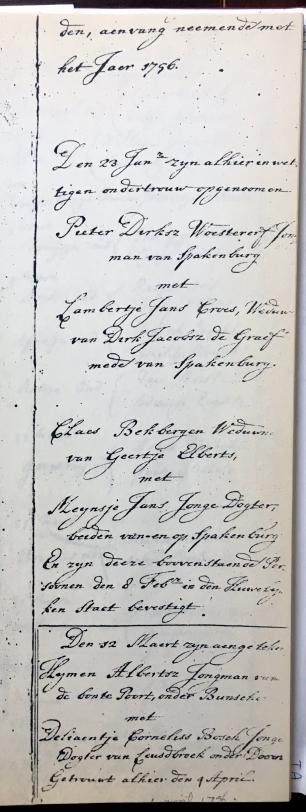 den, aenvang neemende met
het Jaer 1756.
Den 23 Janr zyn alhier in wet
tigen ondertrouw opgenoomen
Peeter Dirksz Woestererf Jong
man van Spakenburg
met
Lambertje Jans Croes, Weduw
van Dirk Jacobsz de Graef
mede van Spakenburg.
Claes Bekbergen Weduwn
van Geertje Elberts,
met
Meynsje Jans Jonge Dogter,
beiden van en op Spakenburg
En zyn deeze boovenstaende Per
soonen den 8 Febr in den Huwelyj
ken staet bevestigt.
Den 12 Maert zyn aengeteke
Hymen Albertsz Jongman van
de bonte Poort, onder Bunscho
met
Deliaentje Corneliss Bosch Jonge
Dogter van Leusdbroek onder Doorn
Getrouwt alhier den 4 April.